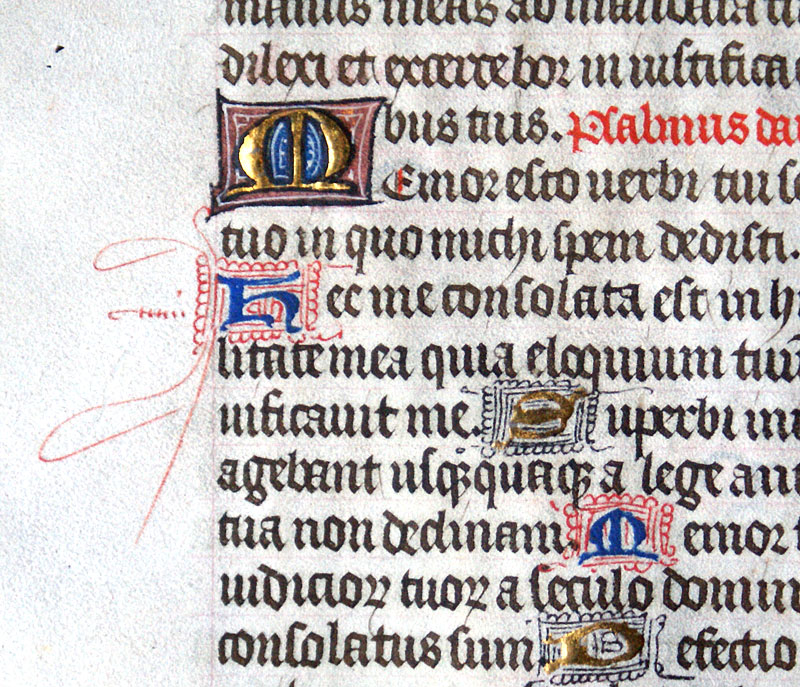 manus meas ad mandata tu
dilexi et excercebor in iustifica
bus tuis. Psalmus da
Memor esto uerbi tui s
tuo in quo michi spem dedisti.
Hec me consolata est in h
litate mea quia eloquium tuū
uificauit me. Superbi in
agebant usqꝫquaqꝫ a lege aut
tua non declinaui. Memor
iudicioꝝ tuoꝝ a seculo domin
consolatus sum. Defectio